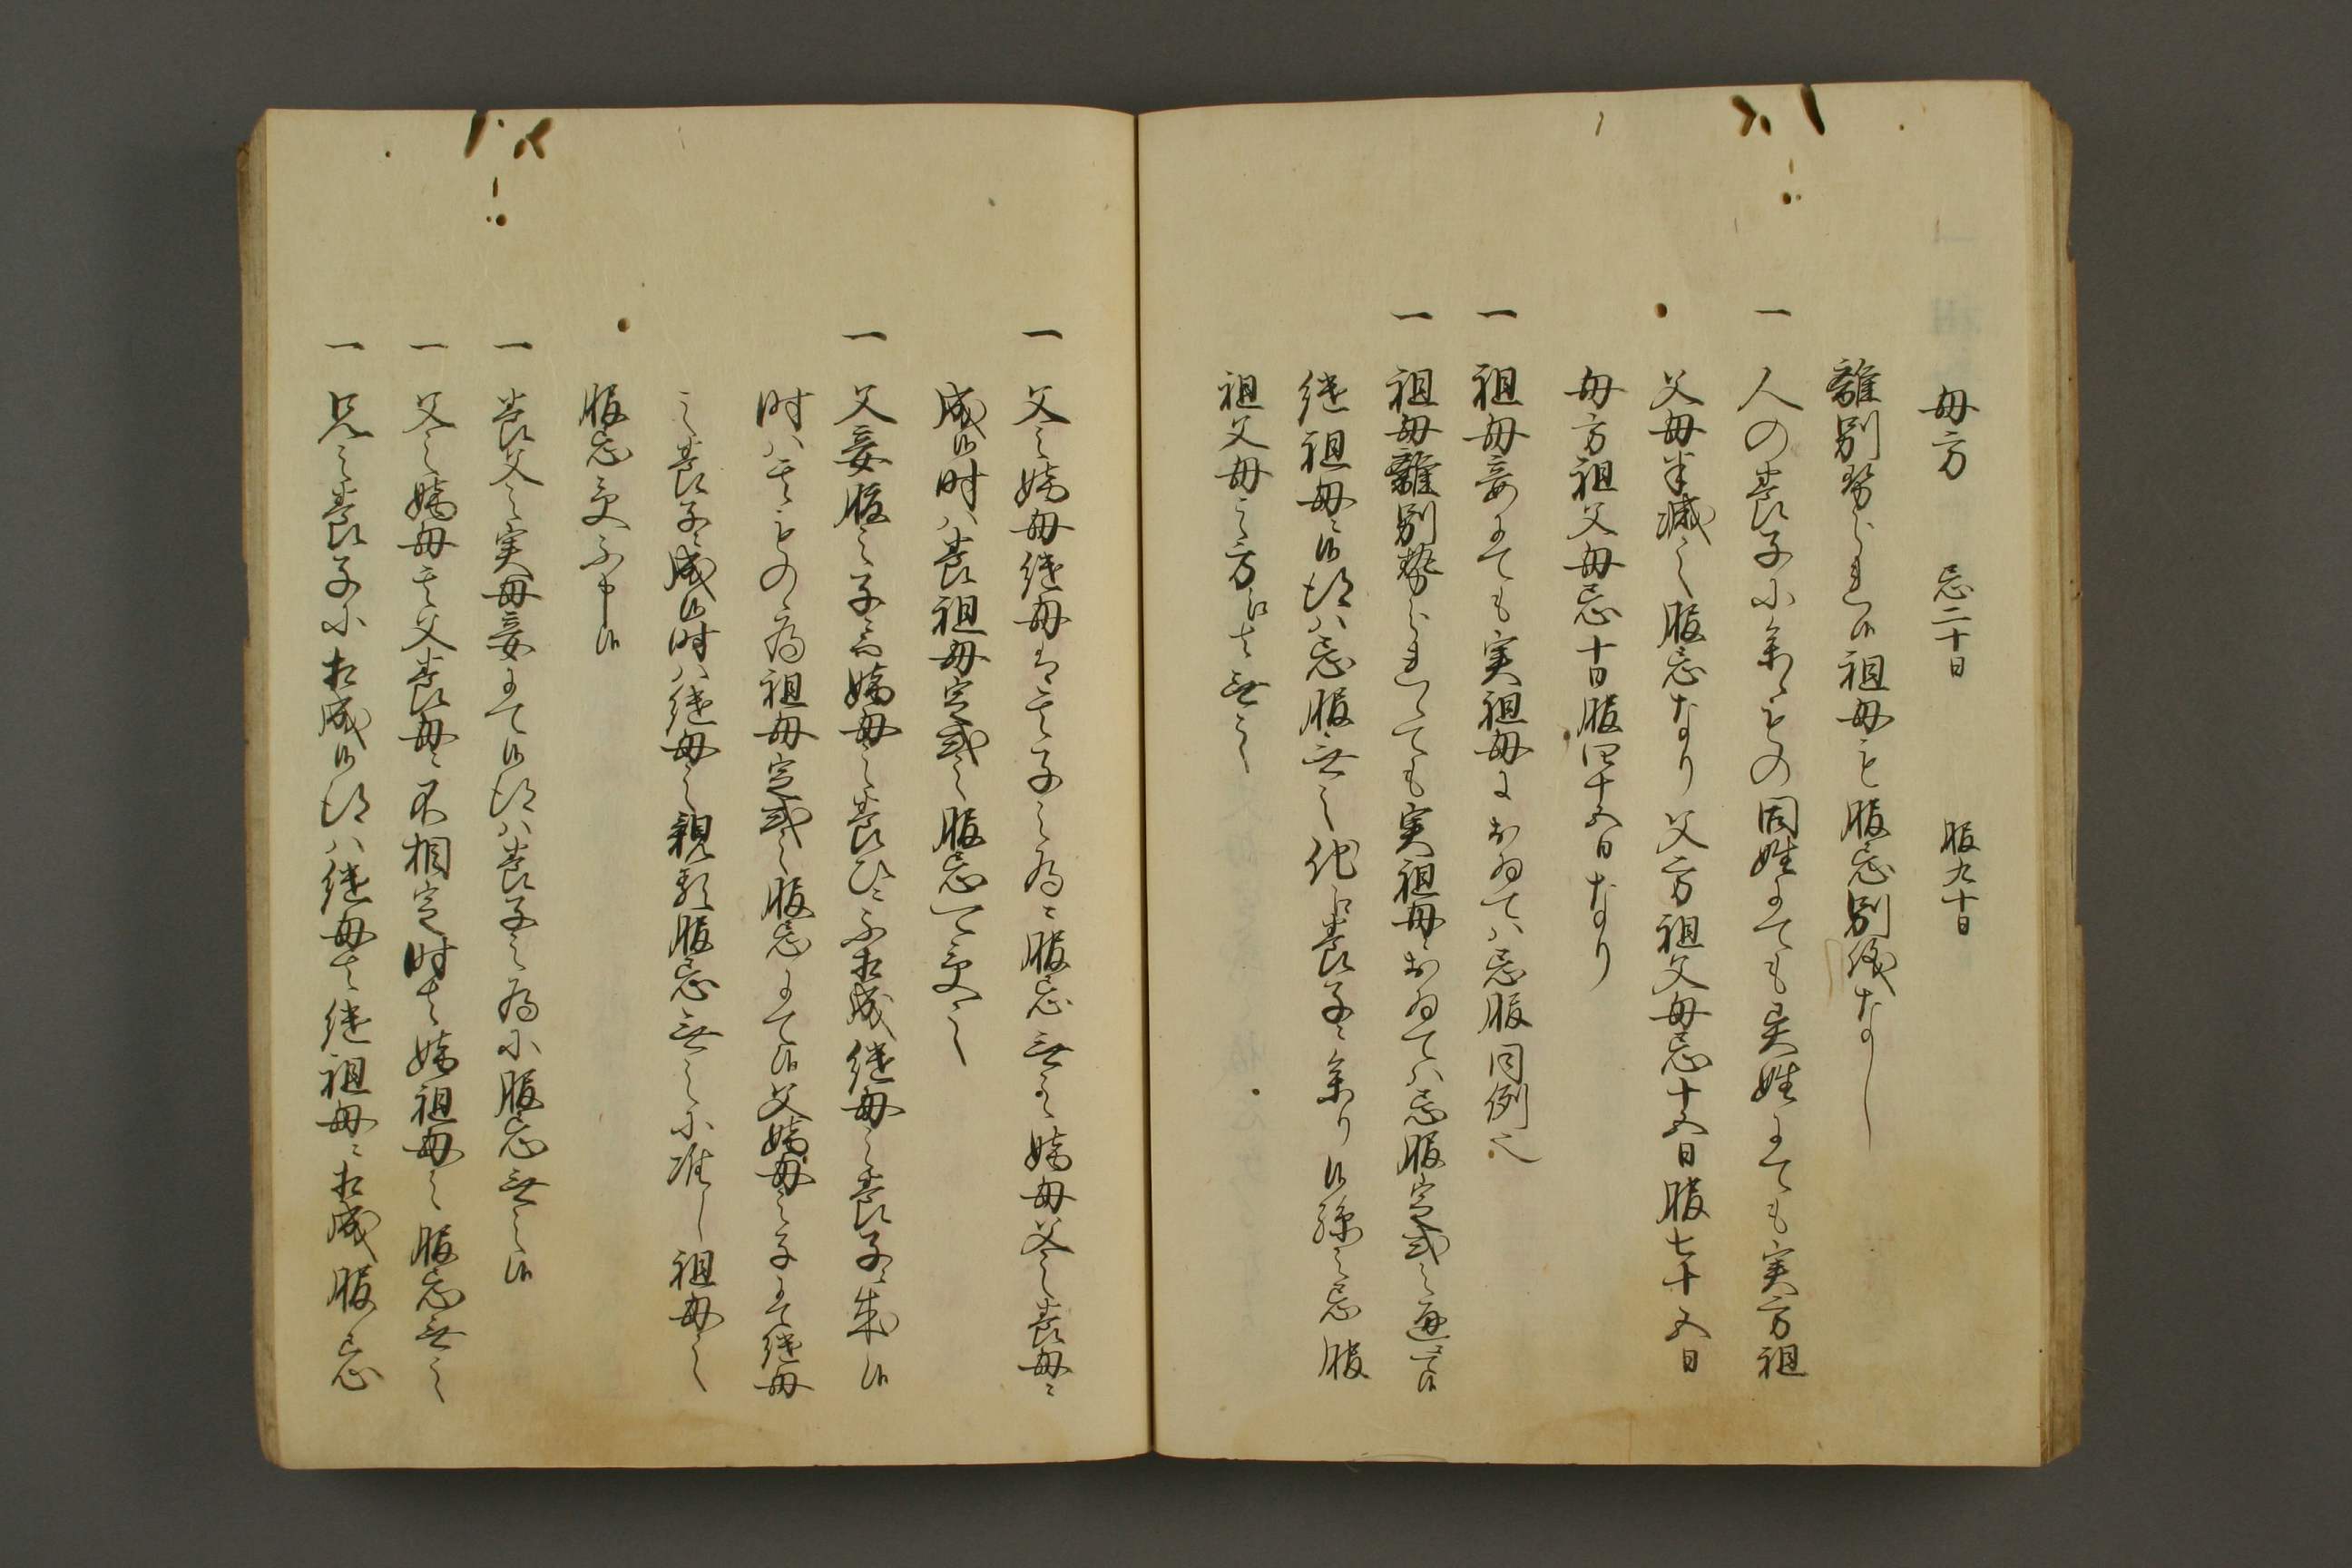 母方　忌二十日　服九十日
離別せられ候祖母も服忌別儀なし
一　人の養子に参ものハ同姓にても異姓にても実方祖
父母半減之服忌なり父方祖父母忌十五日服七十五日
母方祖父母忌十日服四十五日なり
一　祖母妾にても実祖母におゐてハ忌服同例也
一　祖母離別せられても実祖母ニおゐてハ忌服定式之通ニて候
継祖母ニ候得ハ忌服無之他江養子ニ参り候孫之忌服
祖父母之方江者無之
一　父之嫡母継母ハ其子之為ニ服忌無之嫡母父之養母ニ
成候時ハ養祖母定式之服忌可受之
一　父妾服之子ニ而嫡母之養ひニ不相成継母之養子ニ成候
時ハ其もの為祖母定式之服忌にて候父嫡母之子にて継母
之養子ニ成候時ハ継母之親類服忌無之に准し祖母之
服忌受不申候
一　養父之実母妾にて候得ハ養子之為に服忌無之候
一　父之嫡母其父養母ニ不相定時者嫡祖母之服忌無之
一　兄之養子に相成候得ハ継母者継祖母ニ相成服忌